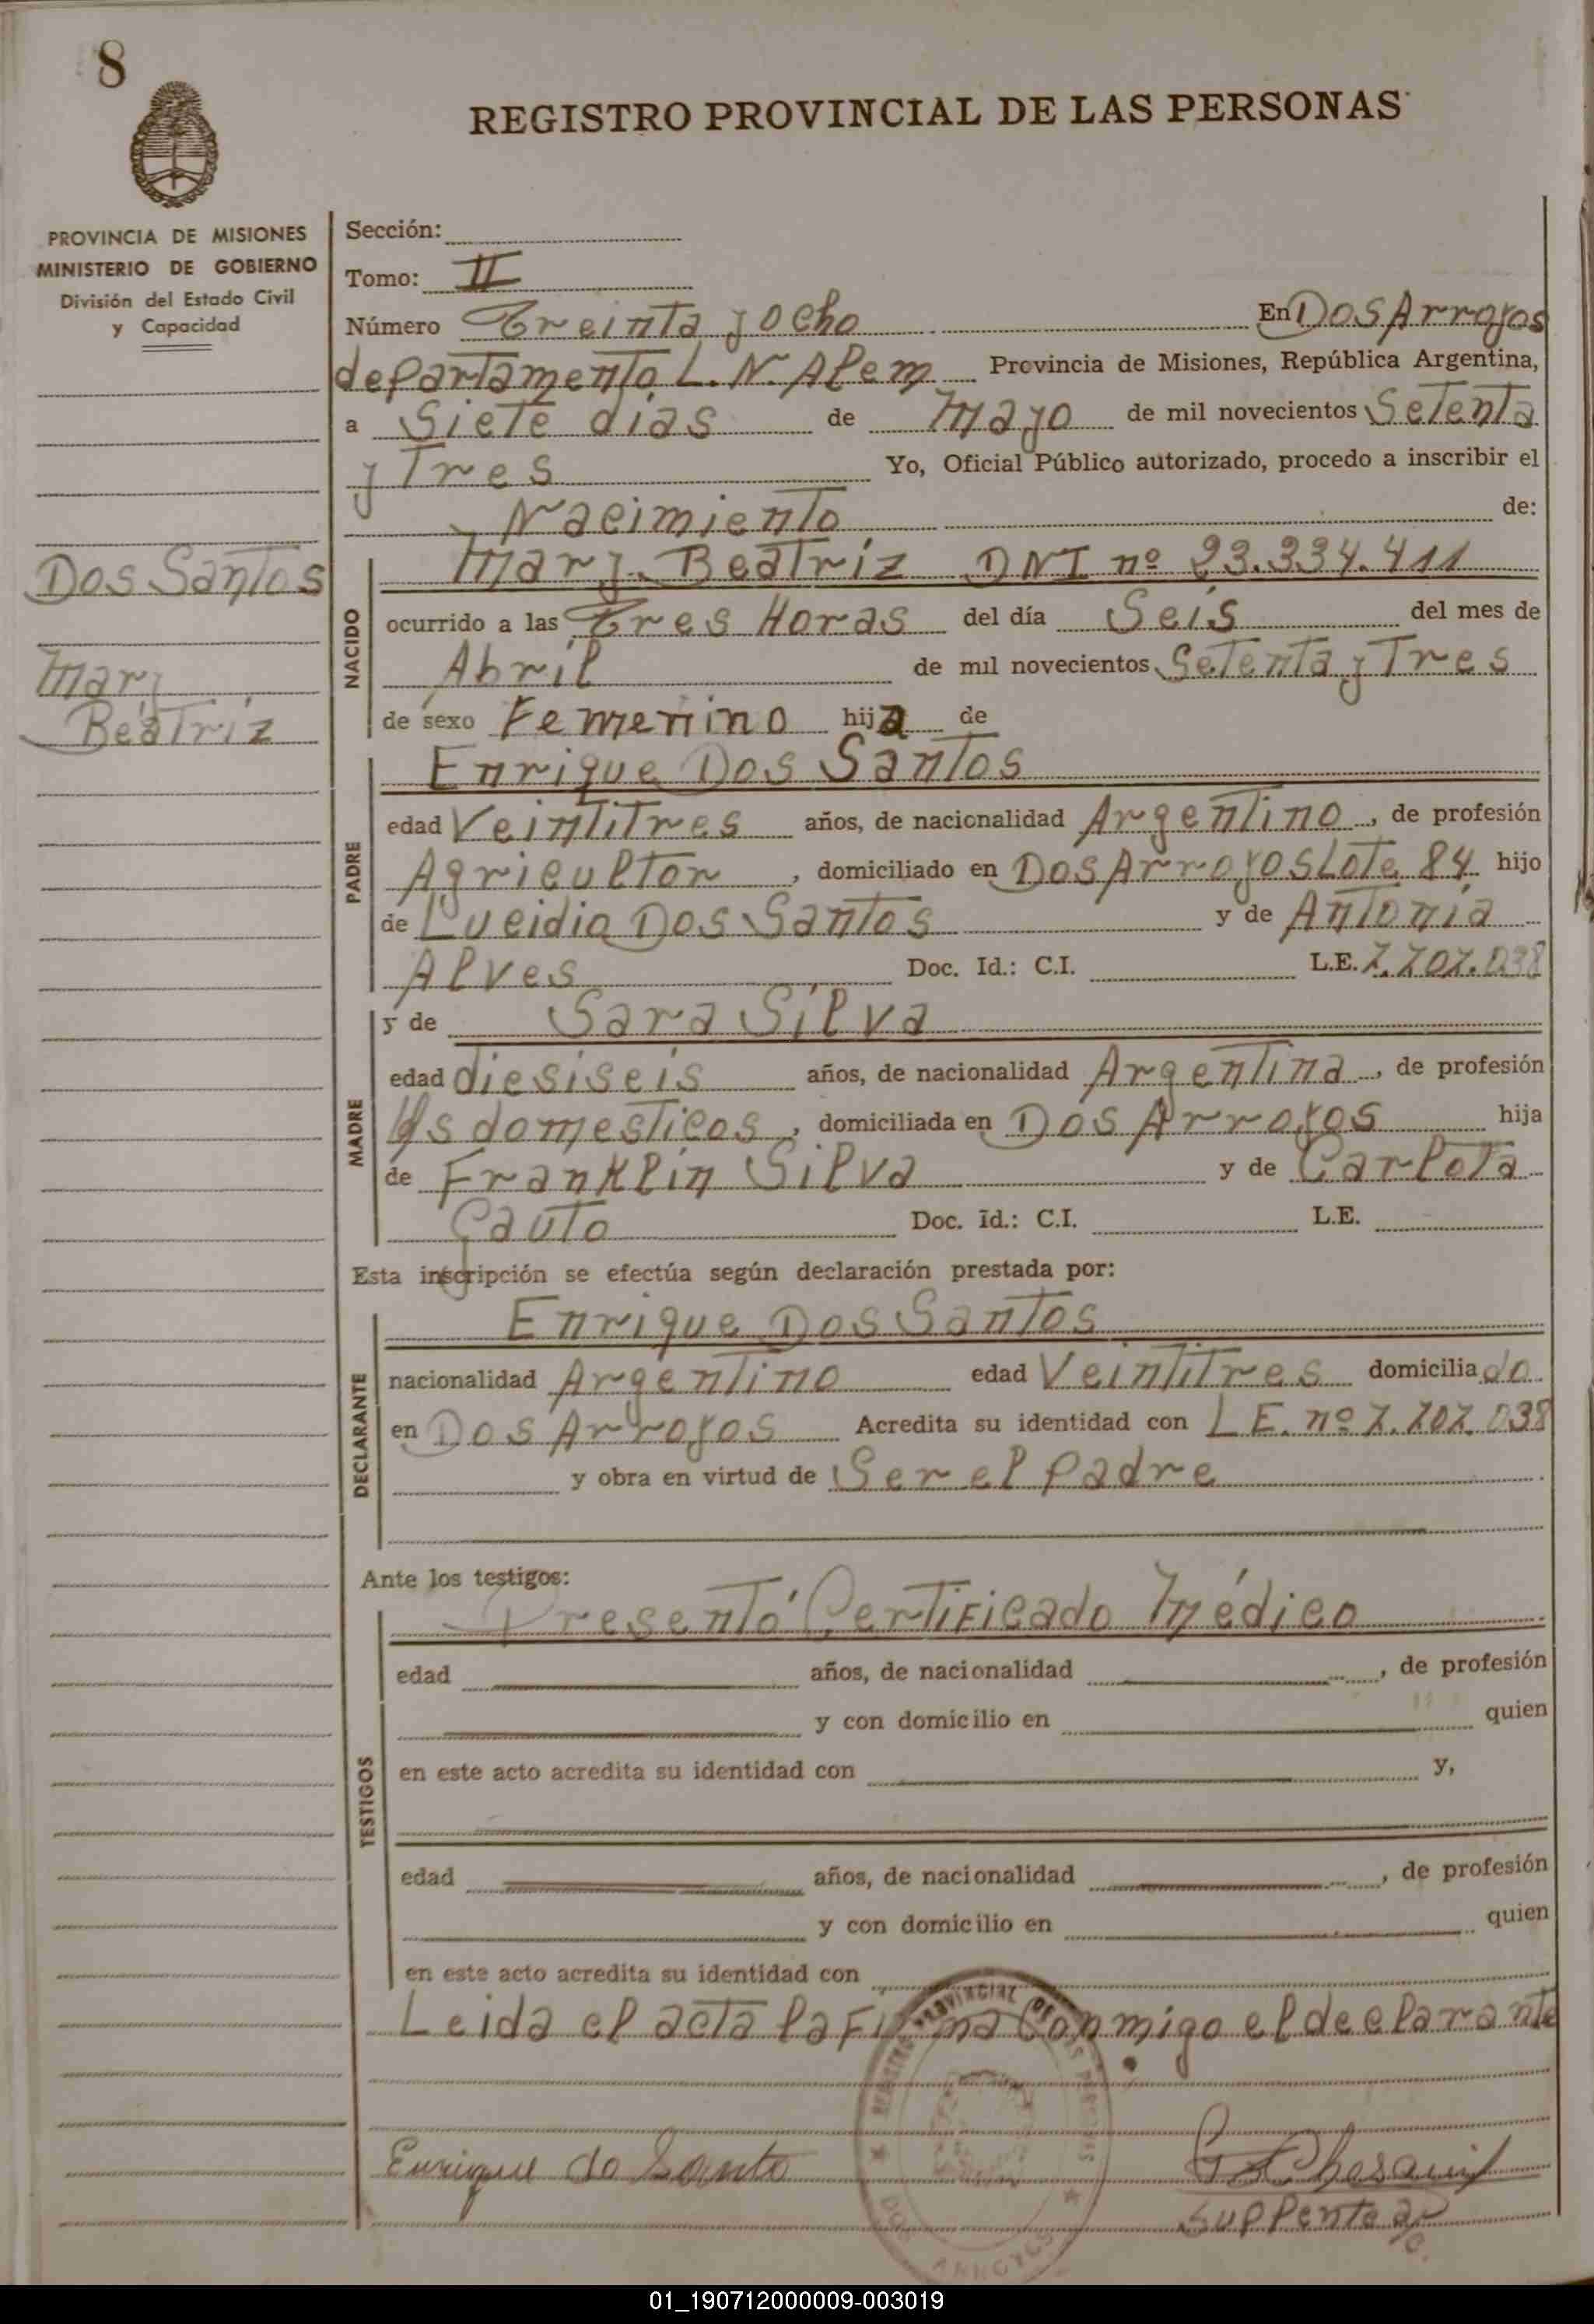 8
REGISTRO PROVINCIAL DE LAS PERSONAS
PROVINCIA DE MISIONES
MINISTERIO DE GOBIERNO
División del Estado Civil
y Capacidad
Dos Santos
Mary
Beatriz
Sección:
Tomo: II
Número Treinta y ocho En Dos Arroyos
departamento L. N. Alem Provincia de Misiones, República Argentina,
a Siete días de Mayo de mil novecientos Setenta
y Tres Yo, Oficial Público autorizado, procedo a inscribir el
Nacimiento de:
NACIDO
Mary Beatríz DNI nº 23.334.411
ocurrido a las Tres Horas del día Seis del mes de
Abril de mil novecientos Setenta y Tres
de sexo Femenino hija de
PADRE
Enrique Dos Santos
edad Veintitres años, de nacionalidad Argentino, de profesión
Agricultor, domiciliado en Dos Arroyos Lote 84 hijo
de Lucidio Dos Santos y de Antonia
Alves Doc. Id.: C.I. L.E. 7.707.038
MADRE
y de Sara Silva
edad diesiseis años, de nacionalidad Argentina, de profesión
Qs domesticos, domiciliada en Dos Arroyos hija
de Franklin Silva y de Carlota
Gauto Doc. Id.: C.I. L.E.
Esta inscripción se efectúa según declaración prestada por:
DECLARANTE
Enrique Dos Santos
nacionalidad Argentino edad Veintitres domiciliado
en Dos Arroyos Acredita su identidad con L E. nº 7.707.038
y obra en virtud de Ser el Padre
Ante los testigos:
TESTIGOS
Presentó Certificado Médico
edad años, de nacionalidad , de profesión
y con domicilio en quien
en este acto acredita su identidad con y,
edad años, de nacionalidad , de profesión
y con domicilio en quien
en este acto acredita su identidad con
Leida el acta la Firma Conmigo el declarante
Enrique do Santo
Supplente
DOS ARROYOS
01_190712000009-003019